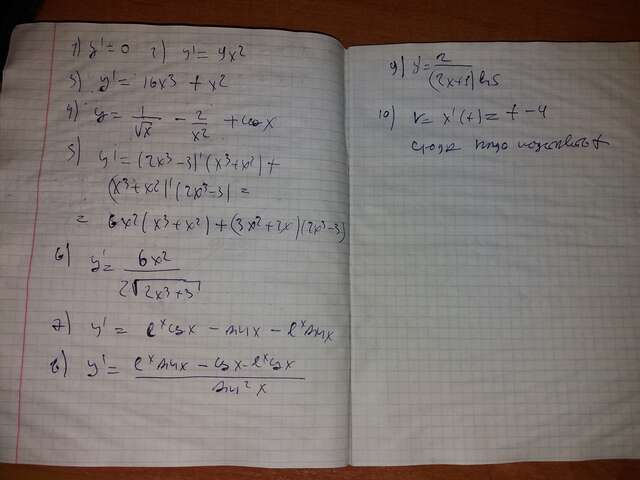 1) y' = 0 2) y' = 4x²
3) y' = 16x³ + x²
4) y = 1/√x - 2/x² + cos x
5) y' = (2x³-3)'(x³+x²) +
(x³+x²)'(2x³-3) =
= 6x²(x³+x²) + (3x²+2x)(2x³-3)
6) y' = 6x²/2√2x³+3
7) y' = eˣcosx - sinx - eˣsinx
8) y' = eˣsinx - cosx - eˣcosx/sin²x
9) y' = 2/(2x+1)ln5
10) v = x'(t) = t - 4
сюда надо